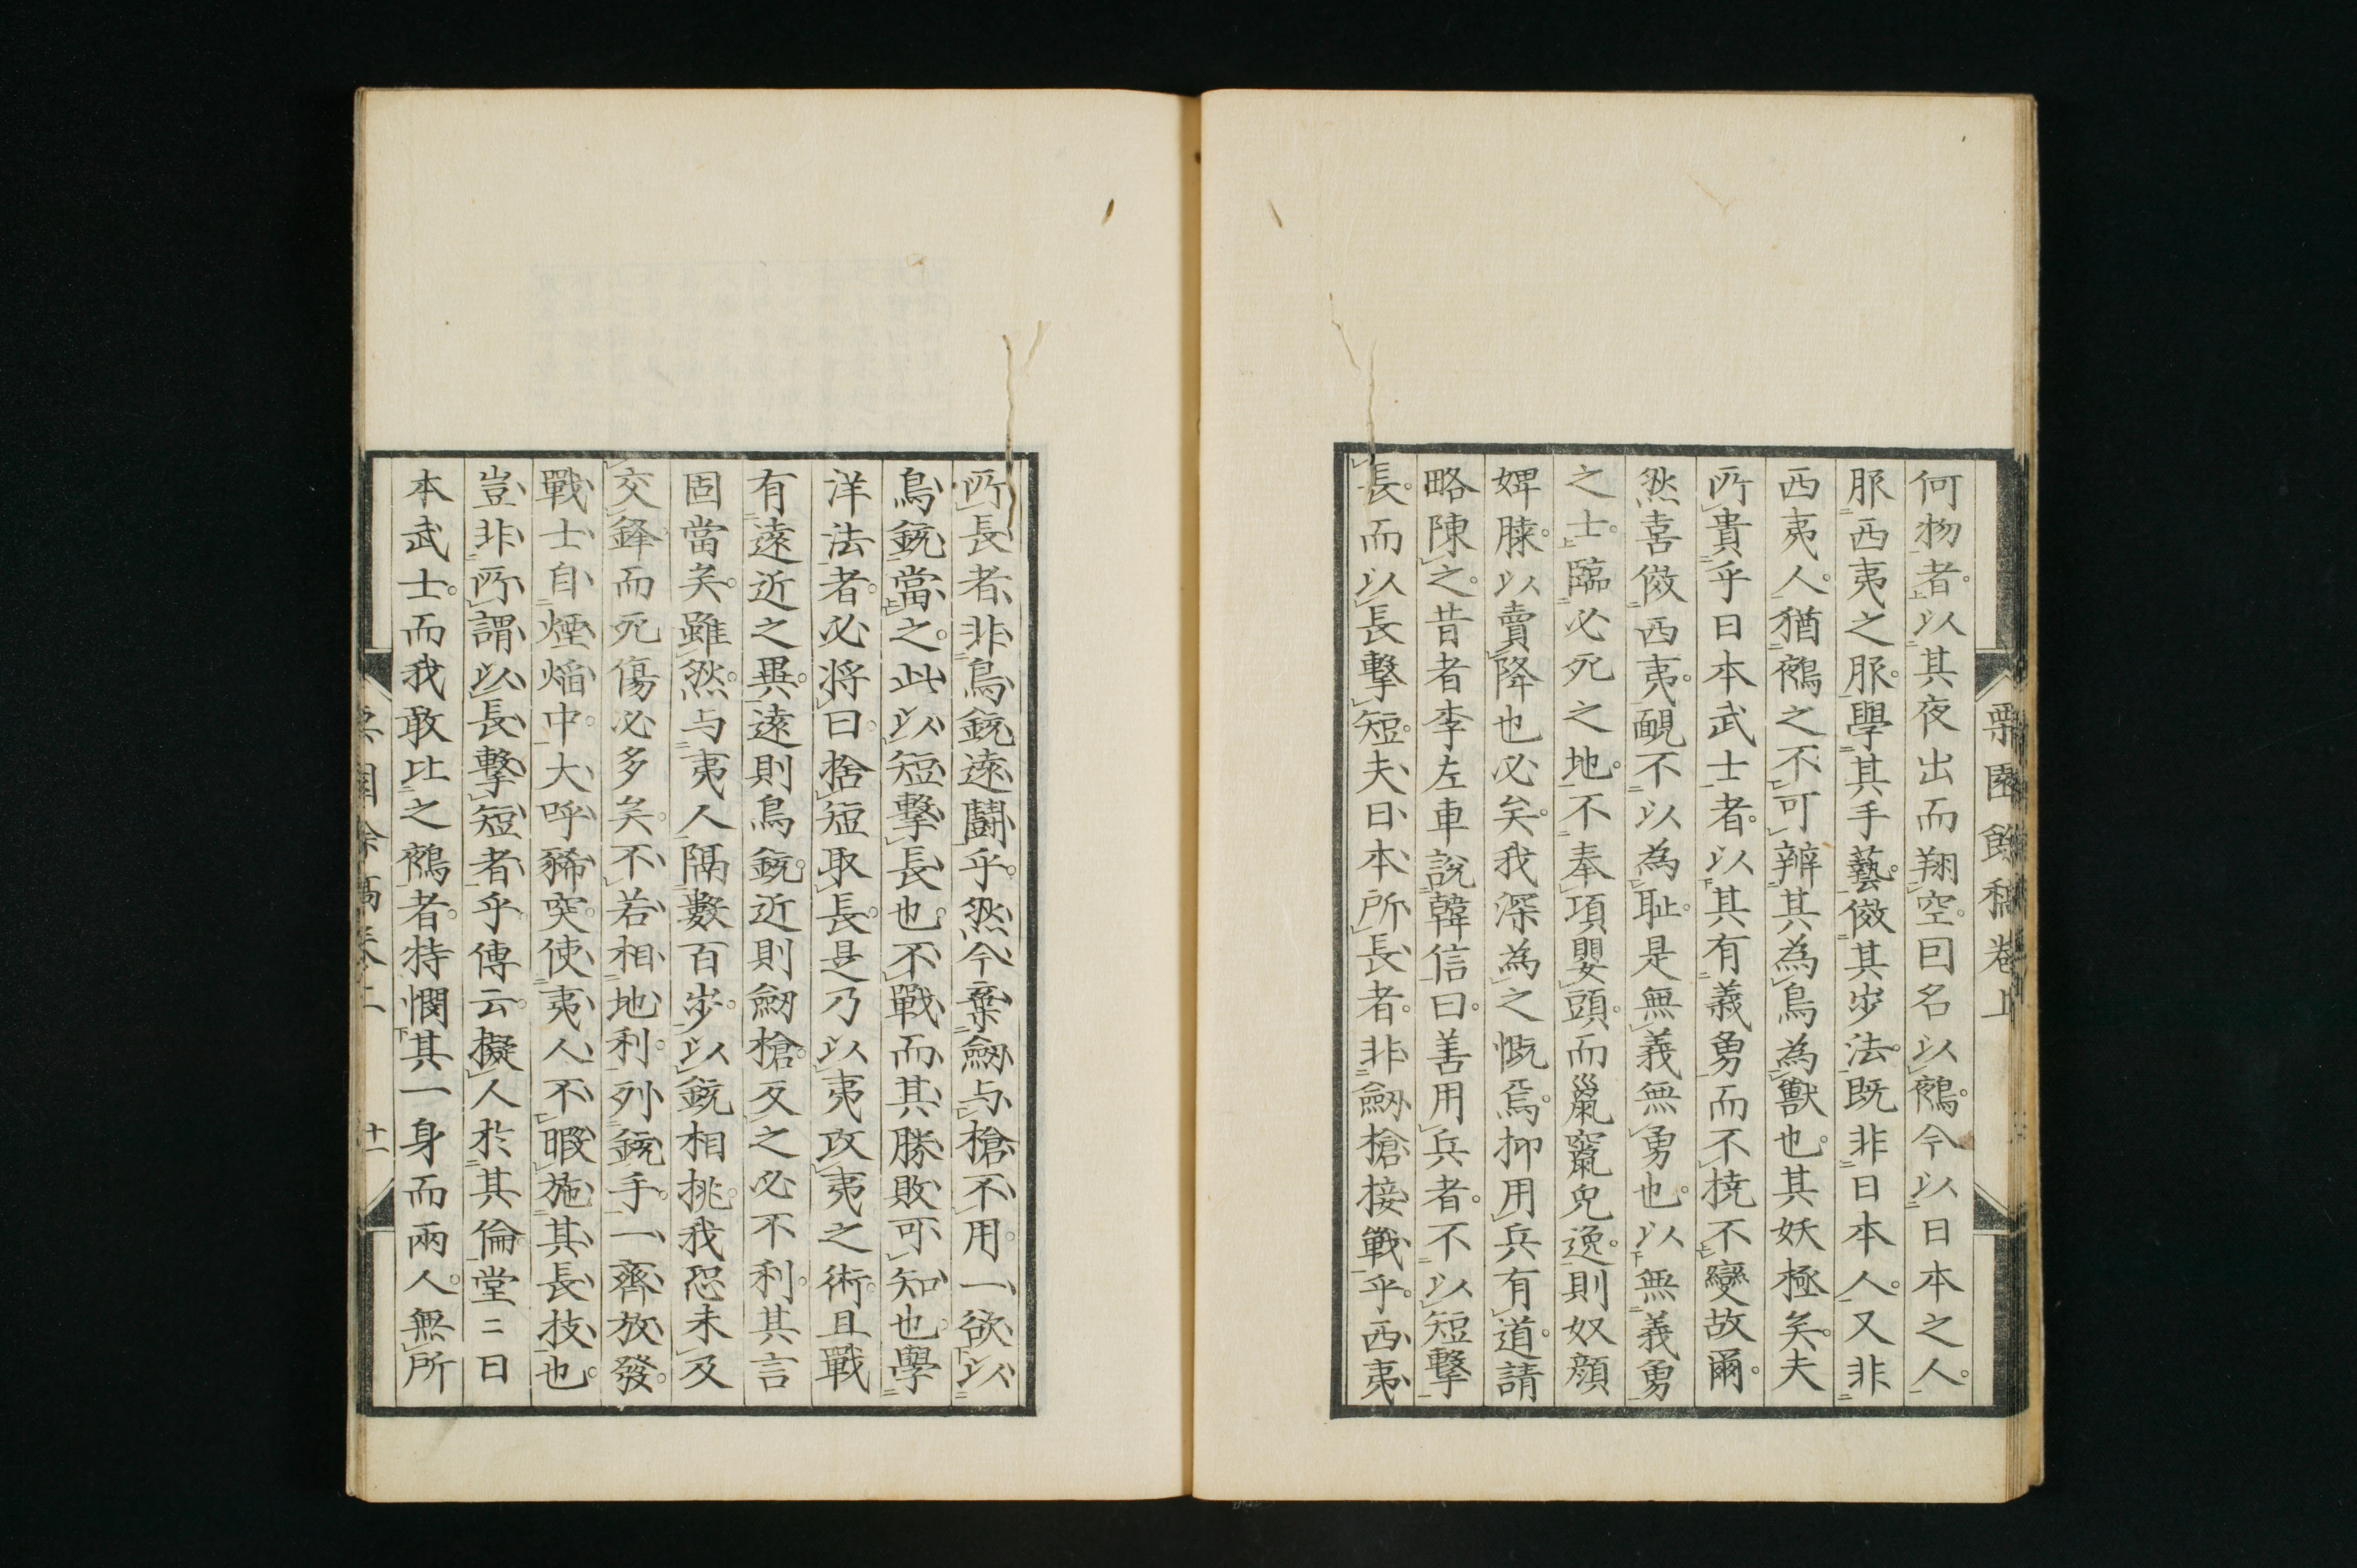 栗園餘稿卷上
何物者。以其夜出而翔空。因名以鵺。今以日本之人。
服西夷之服。學其手藝。傚其步法。既非日本人。又非
西夷人。猶鵺之不可辨其為鳥為獸也。其妖極矣。夫
所貴乎日本武士者。以其有義勇而不撓不變故爾。
然喜傚西夷。靦不以為恥。是無義無勇也。以無義勇
之士。臨必死之地。不奉項嬰頭。而鼠竄兔逸。則奴顔
婢膝。以賣降也必矣。我深為之慨焉。抑用兵有道。請
略陳之。昔者李左車說韓信曰。善用兵者。不以短擊
長。而以長擊短。夫日本所長者。非劒槍接戰乎。西夷
所長者非鳥銃遠鬪乎。然今棄劒与槍不用。一欲以
鳥銃當之。此以短擊長也。不戰而其勝敗可知也。學
洋法者。必將曰。捨短取長。是乃以夷攻夷之術。且戰
有遠近之異。遠則鳥銃。近則劒槍。反之必不利。其言
固當矣。雖然。与夷人隔數百步。以銃相挑。我恐未及
交鋒而死傷必多矣。不若相地利。列銃手。一齊放發。
戰士自煙焰中。大呼豨突。使夷人不暇施其長技也。
豈非所謂以長擊短者乎。傳云。擬人於其倫。堂〻日
本武士。而我敢比之鵺者。特憫其一身而兩人。無所
十一